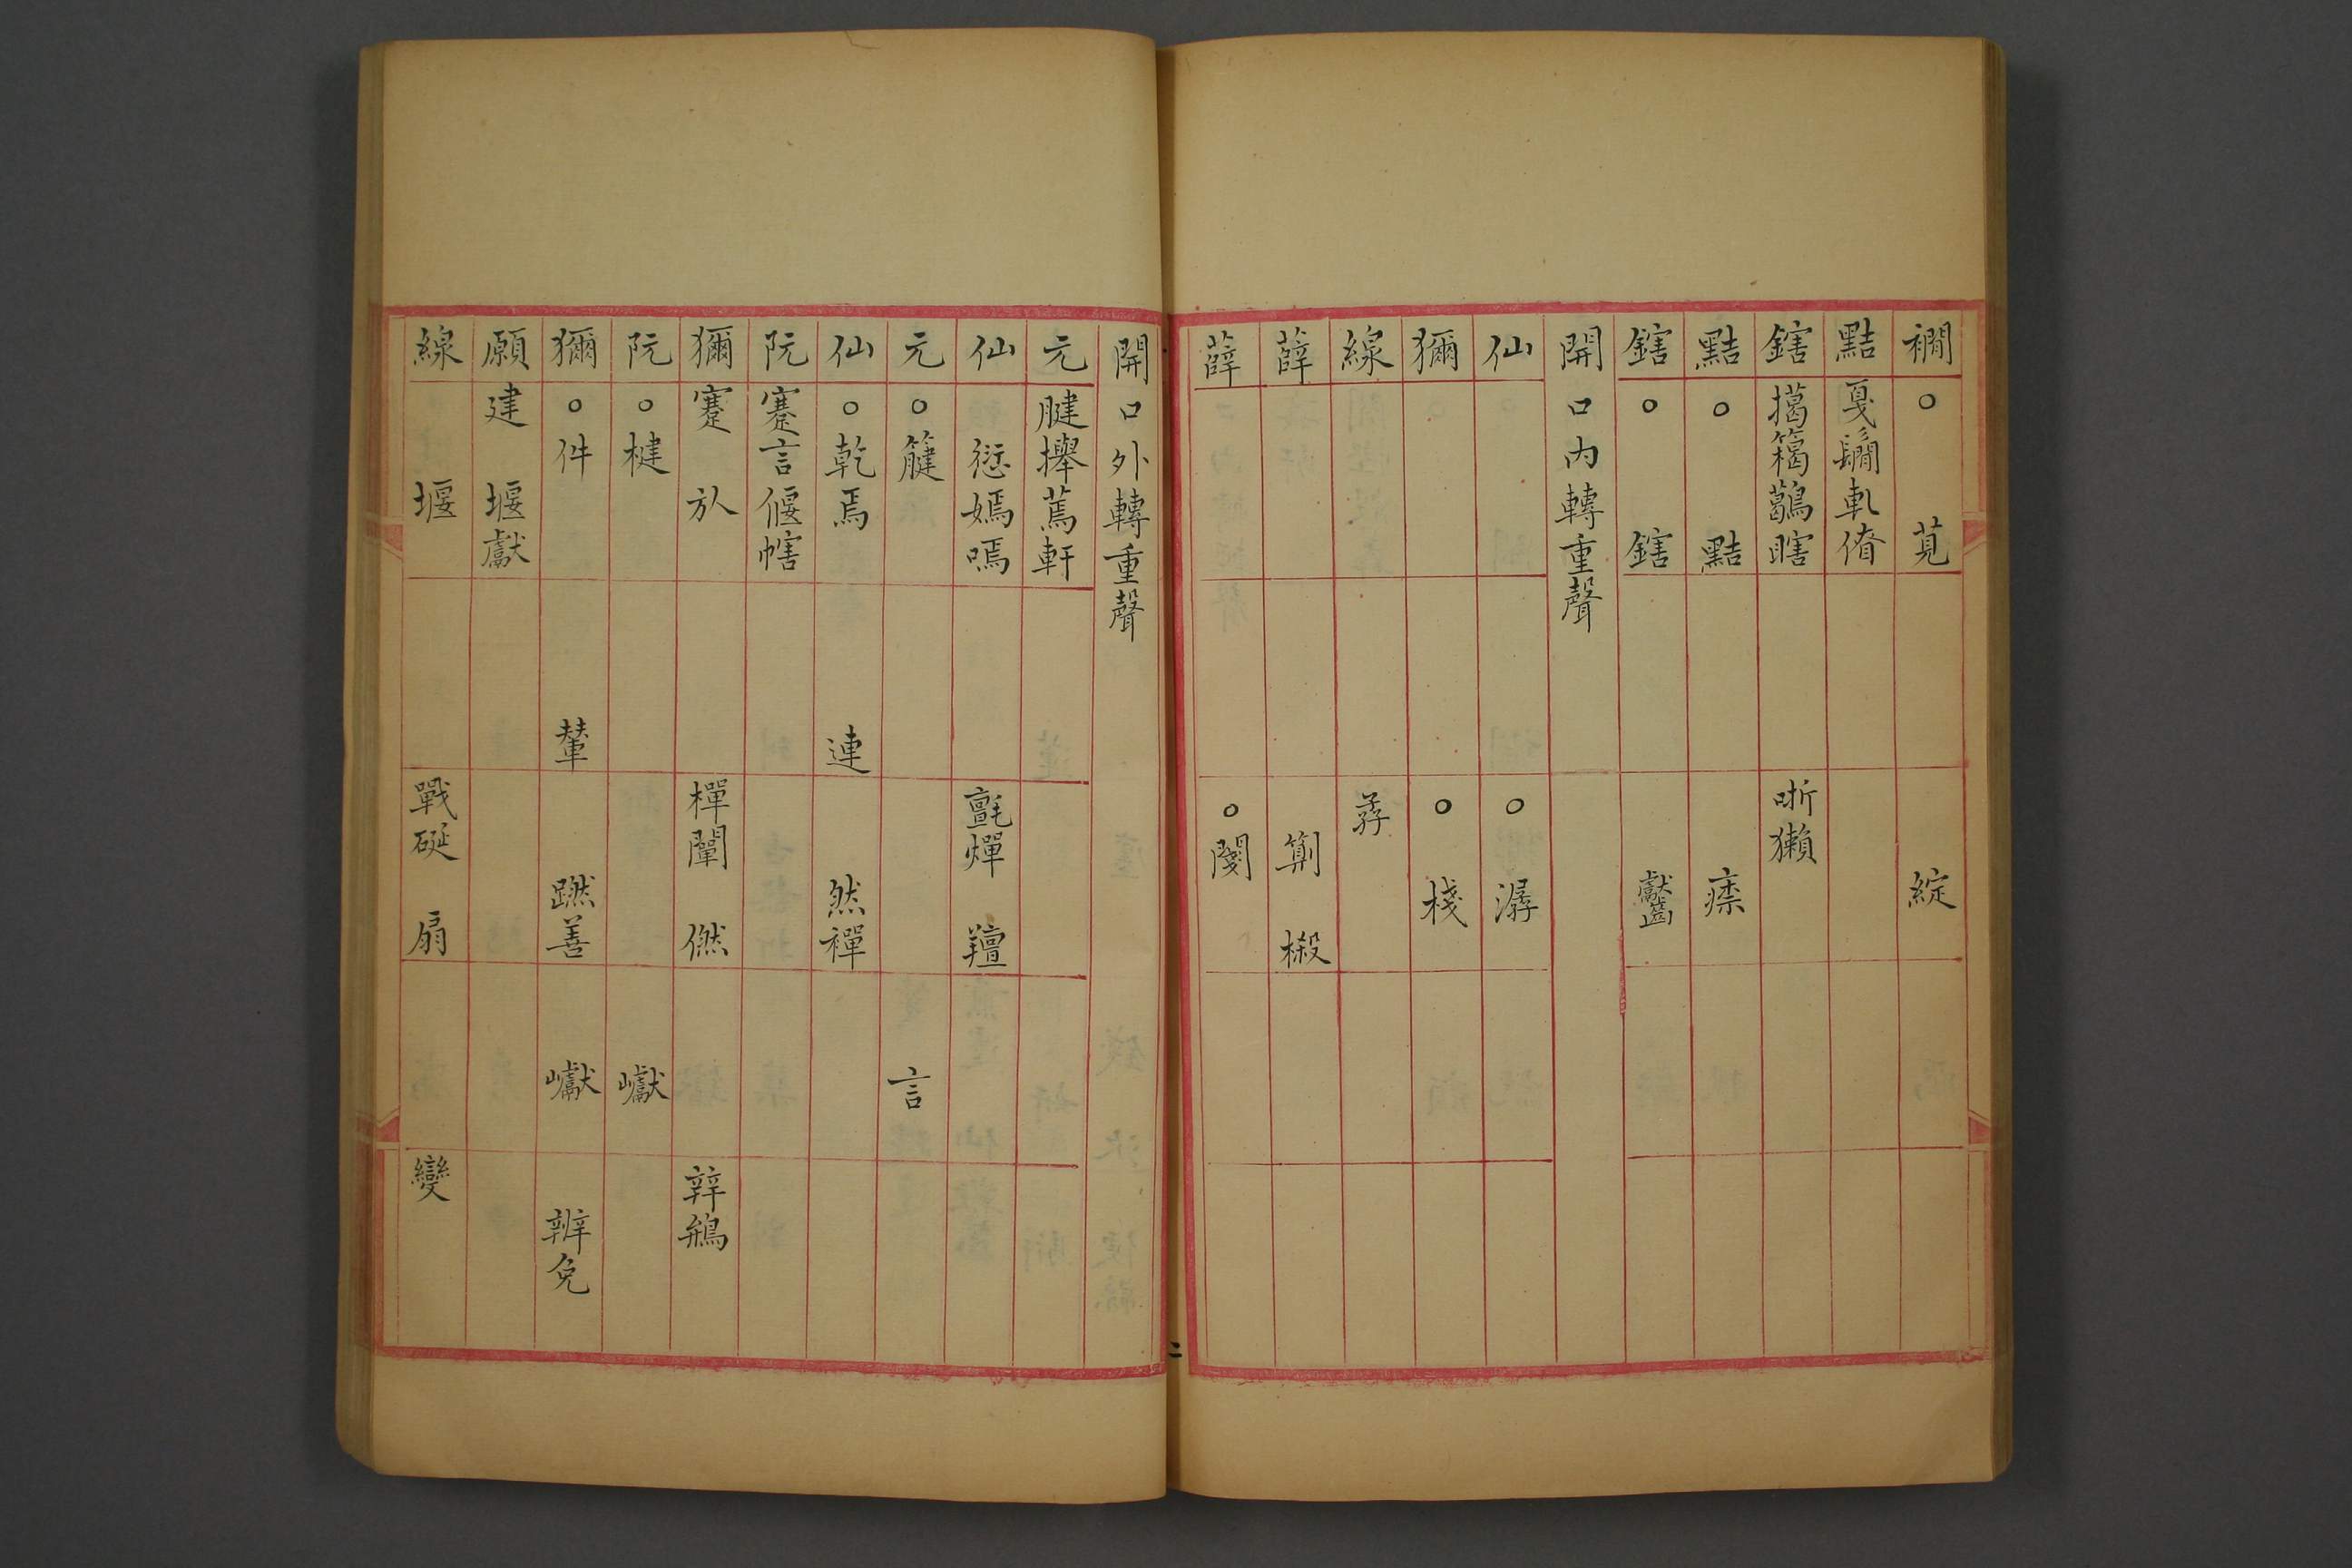 襉○莧綻
黠戛鬝軋傄
鎋擖𥴭鶷瞎哳獺
黠○黠瘵
鎋○鎋
開口內轉重聲
仙○潺
獮○棧
線孨
薛𠜾榝
薛○閿
開口外轉重聲
元腱攑蔫軒
仙愆嫣嘕氈燀羶
元○籏言
仙○乾焉連然禪
阮蹇言偃幰
獮蹇㫃樿闡㒄辡鴘
阮○楗巘
獮○件輦蹨善巘辨免
願建堰獻
線堰戰硟扇變
二